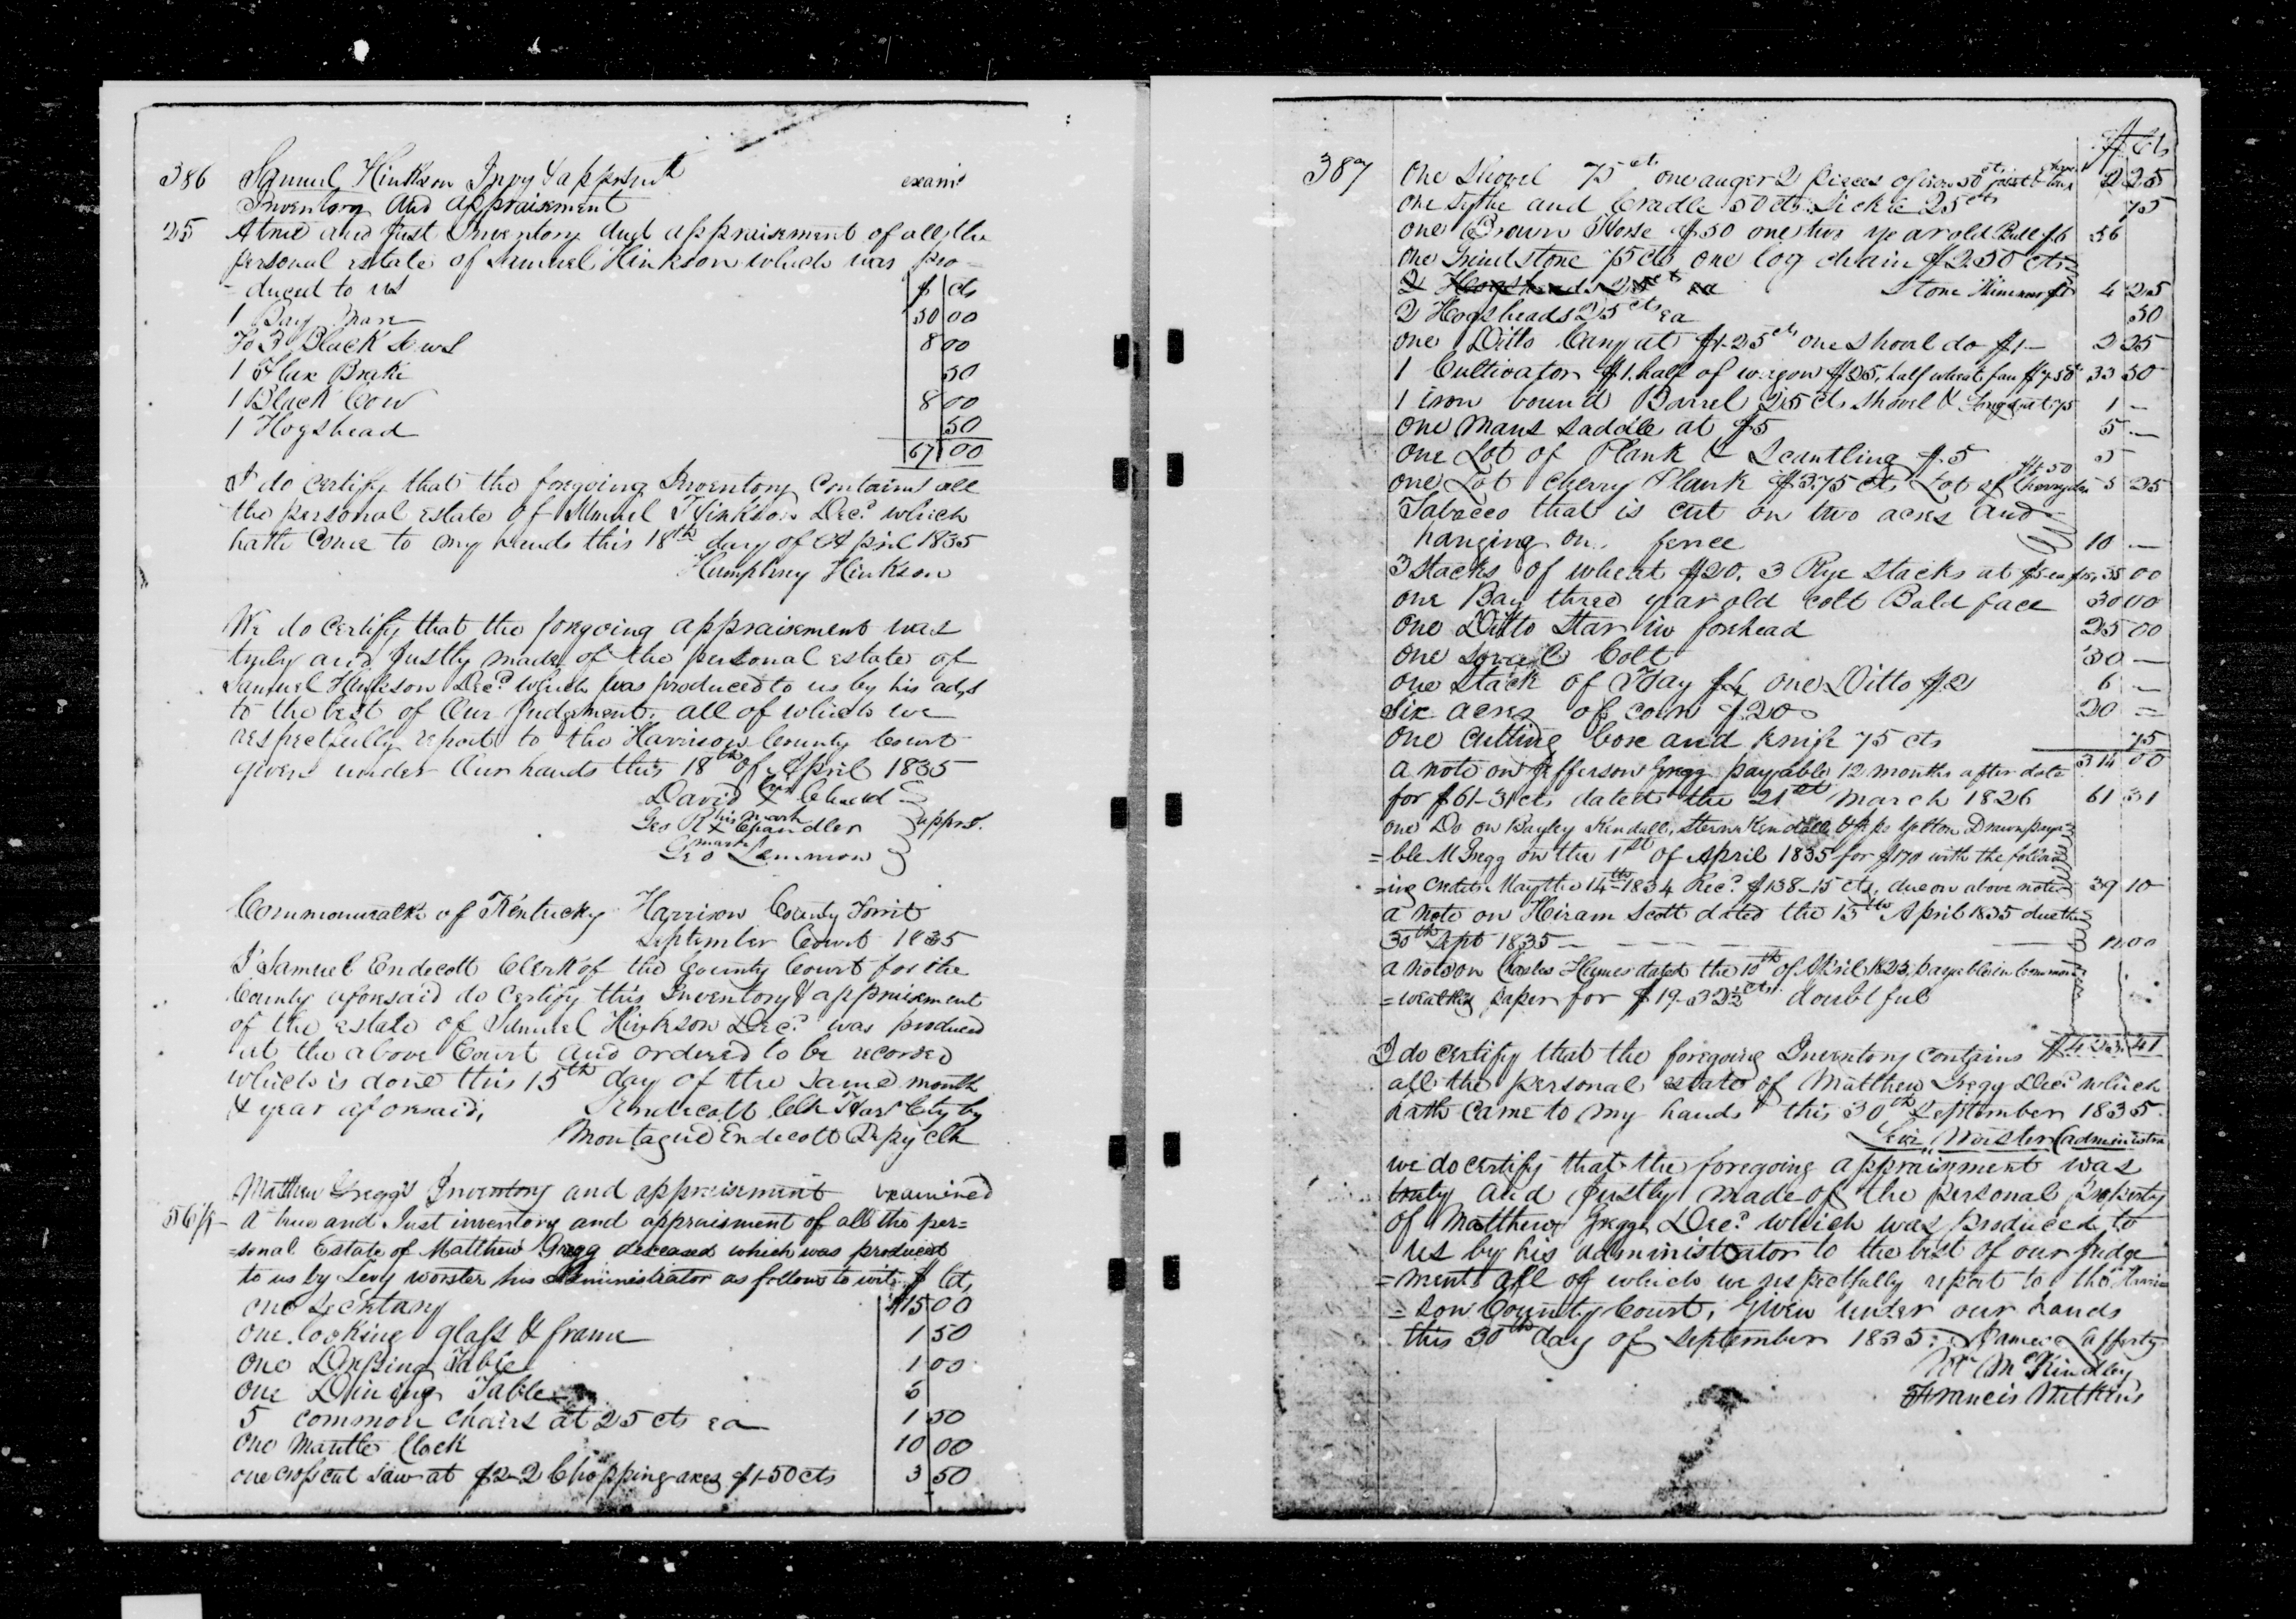 386 Samuel Hinkson Invy & apprsmt examd
Inventory And appraisement
25 A true and Just Inventory And appraisement of all the
personal estate of Samuel Hinkson which was pro-
-duced to us $ cts
1 Bay Mare 50 00
To 3 Black Sows 8 00
1 Flax Brake 50
1 Black Cow 8 00
1 Hogshead 50
67 00
I do certify that the foregoing Inventory contains all
the personal estate of Samuel Hinkson Decd which
hath come to my hands this 18th day of April 1835
Humphrey Hinkson
We do certify that the foregoing appraisement was
truly and Justly made of the personal estate of
Samuel Hinkson Decd which was produced to us by his
to the best of Our Judgment, all of which we
respectfully report to the Harrison County Court
given under Our hands this 18th of April 1835
David X
Geo R his X mark Chandler apprs.
Geo Lemmon
Commonwealth of Kentucky Harrison County
September Court 1835
I Samuel Endecott Clerk of the County Court for the
County aforesaid do certify this Inventory & appraisement
of the estate of Samuel Hinkson Decd was produced
at the above Court and ordered to be recorded
which is done this 15th day of the same month
& year aforesaid, S Endecott Clk Har Cty by
Montague Endecott Depy Clk
Matthew Gregg's Inventory and appraisement examined
A true and Just inventory and appraisment of all the per=
=sonal Estate of Matthew Gregg deceased which was produced
to us by Levy worster his Administrator as follows to wit $ Cts
one Secretary $15 00
one looking glass & frame 1 50
one Dressing Table 1 00
one Dining Table 6
5 common chairs at 25 cts ea 1 50
one Mantle Clock 10 00
one crosscut saw at $2-2 Chopping axes $1-50 cts 3 50
$ Cts
387 One Shovel 75 cts one auger 2 pieces of iron 50 cts 2 25
one Sythe and Cradle 50 cts Sickle 25 cts 75
one Brown Horse $50 one two year old Bull $6 56
one Grindstone 75 cts one log chain $2.50 cts
2 Hogsheads 25 cts ea Stone $1 4 25
2 Hogsheads 25 cts ea 50
one Ditto Cary at $1-25 cts one Shovel do $1- 2 25
1 Cultivator $1. half of wagon $25, half wheat fan $7-50 33 50
1 iron bound Barrel 25 cts Shovel & Tongs at 75 1 -
One Mans Saddle at $5 5 -
One Lot of Plank & Scantling $.5 5
one Lot Cherry Plank $3.75 cts Lot of $1.50 5 25
Tobacco that is cut on two acres and
hanging on fence 10 -
3 Stacks of wheat $20. 3 Rye Stacks at $5 ea $15. 35 00
one Bay three year old colt Bald face 30 00
one Ditto Star in forehead 25 00
one Sorrel Colt 30 -
one Stack of Hay $4 one Ditto $2 6 -
Six acres of corn $20 20 -
one Cutting box and knife 75 cts 75
314 00
a note on Jefferson Gregg payable 12 months after date
for $61-31 cts dated the 21st March 1826 61 31
one Do on Bayley Kendall, Yelton Drawn paya=
=ble M Gregg on the 1st of April 1835 for $170 with the follow
=ing Credits May the 14th 1834 Recd $138-15 cts, due on above note 39 10
a Note on Hiram Scott dated the 15th April 1835 due the
30th Sept 1835 - - - - 00
a note on Charles dated the 10th of April 1823 payable in Common
=wealths paper for $19-32½ cts doubtful
I do certify that the foregoing Inventory contains
all the personal estate of Matthew Gregg Decd which
hath came to my hands this 30th September 1835
Levi Worster administra
we do certify that the foregoing appraisment was
truly and Justly made of the personal property
of Matthew Gregg Decd which was produced to
us by his administrator to the best of our judge
=ment all of which we respectfully report to the Harri=
=son County Court, Given under our hands
this 30th day of September 1835. James Lafferty
Wm McKindley
Francis Watkins